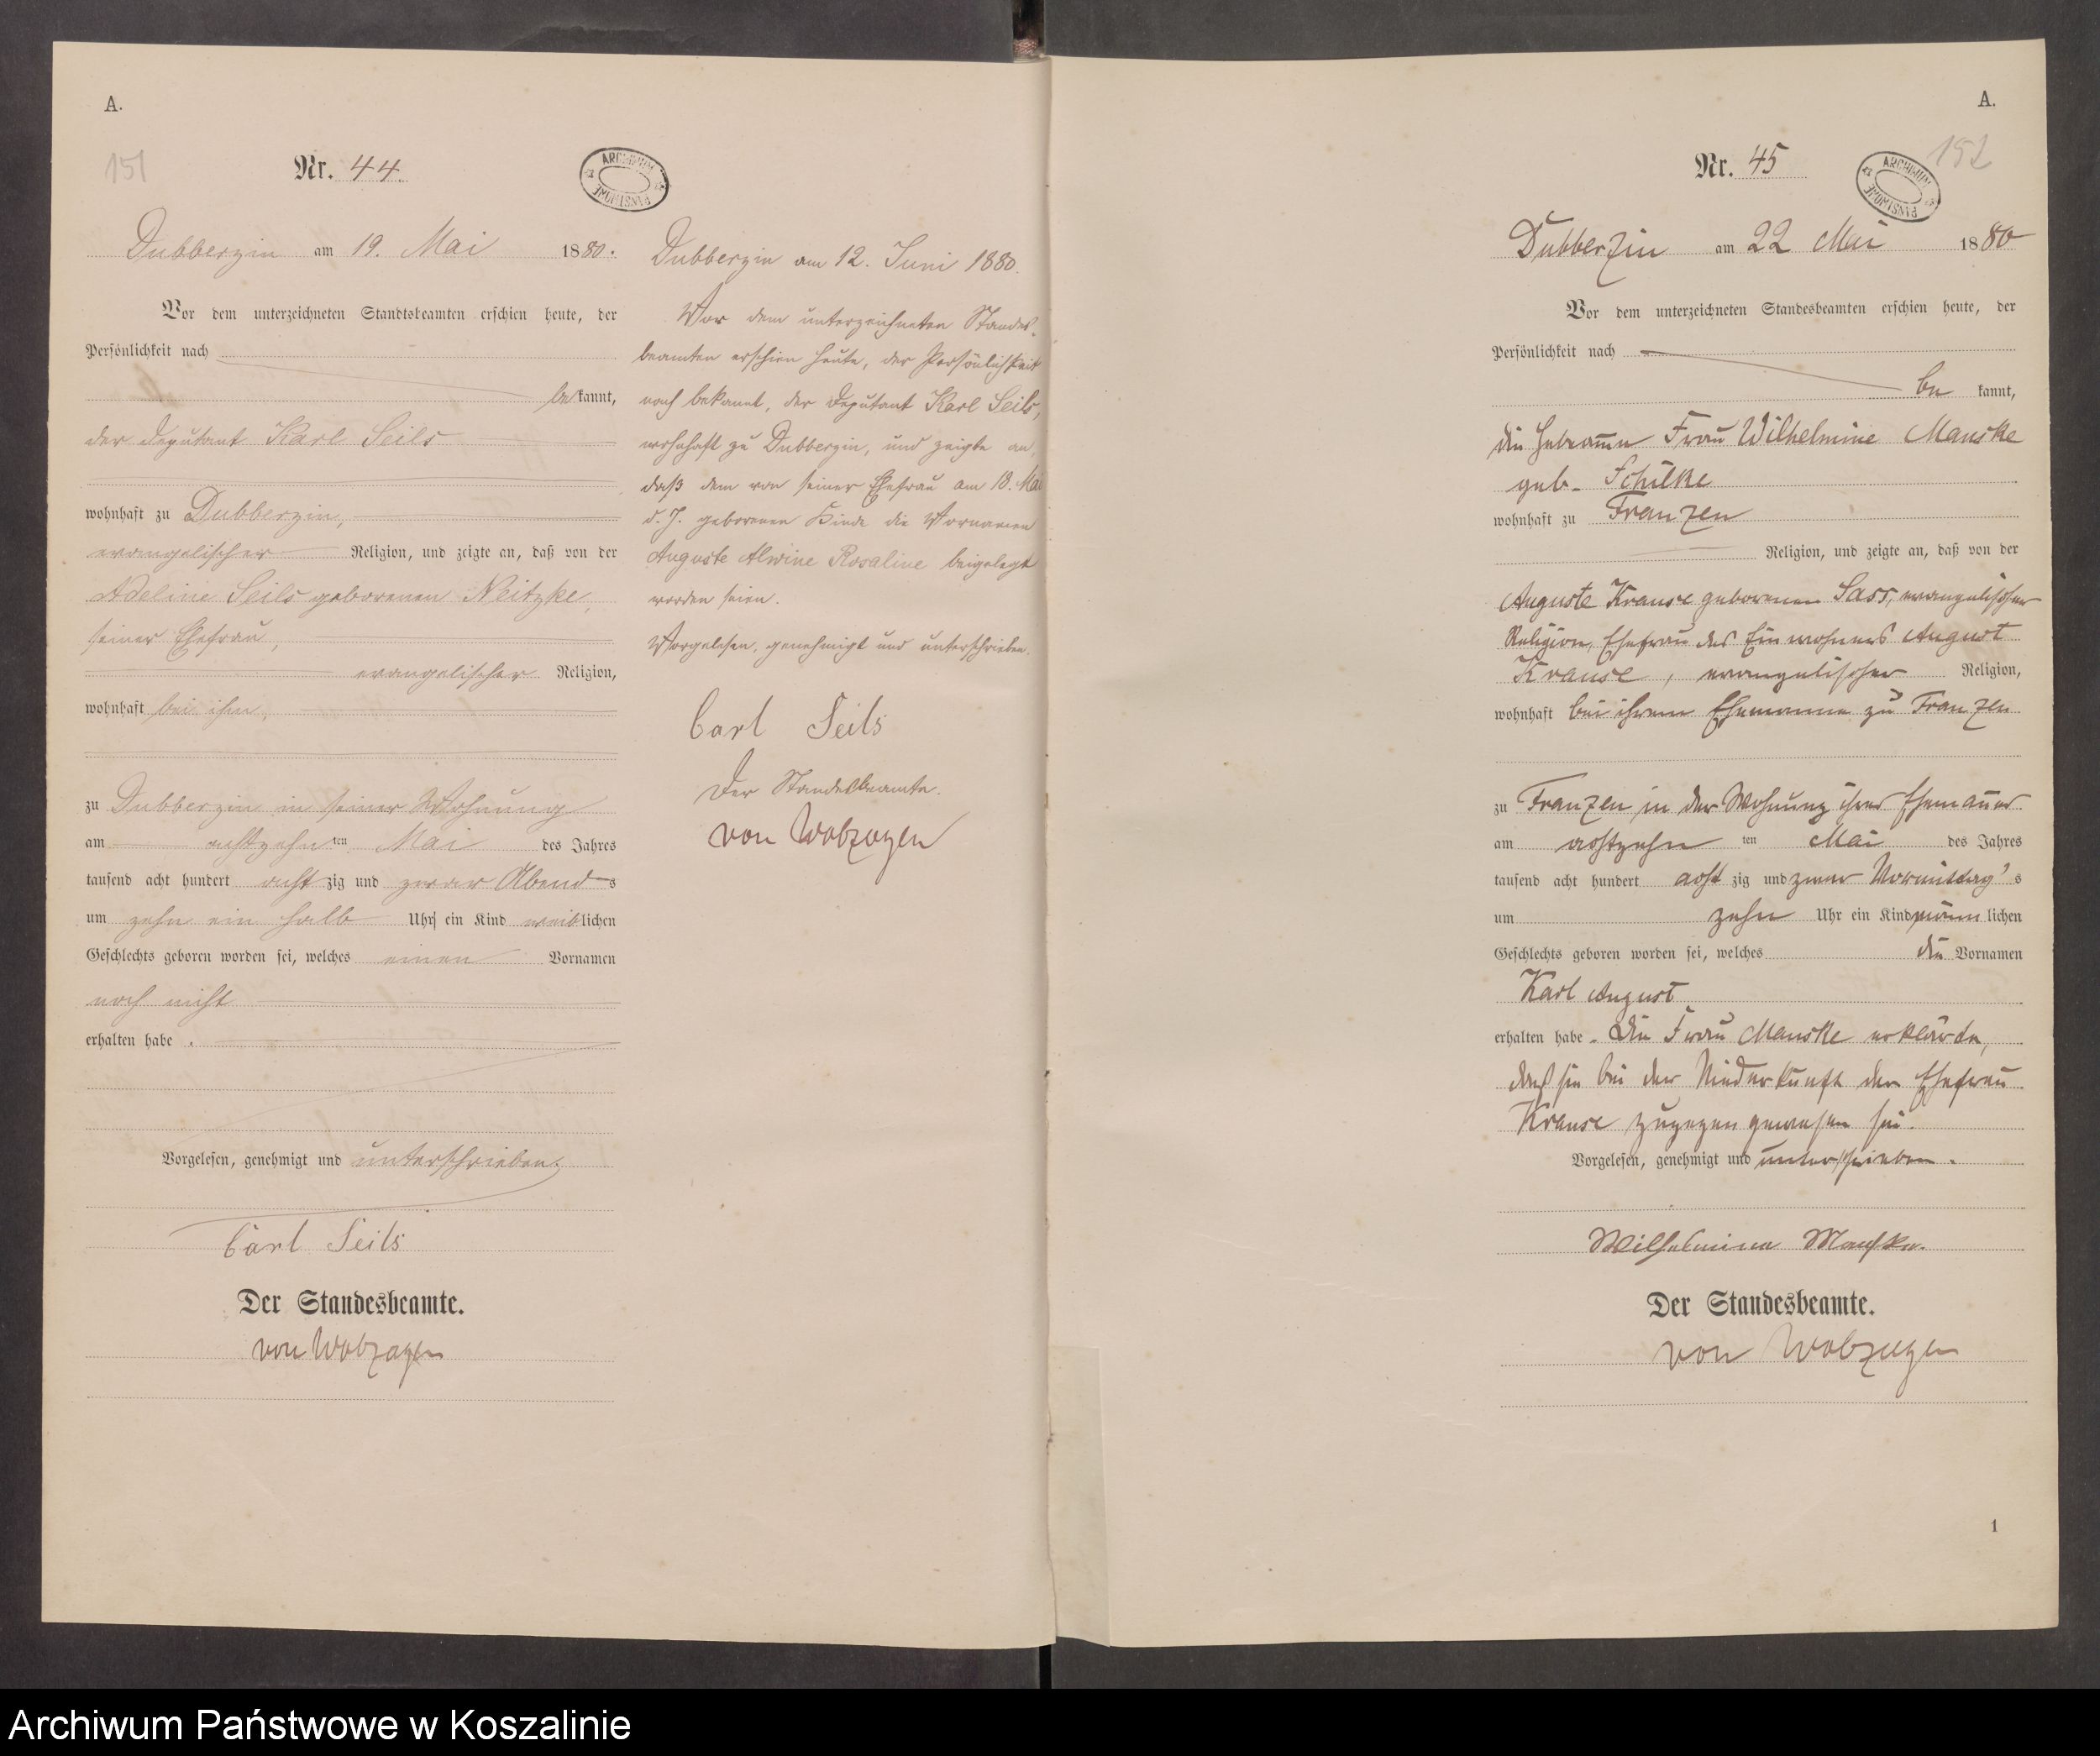 A.
151
Nr. 44.
ARCHIWUM PAŃSTWOWE
Dubberzin am 19. Mai 1880.
Vor dem unterzeichneten Standtsbeamten erschien heute, der
Persönlichkeit nach
be kannt,
der Deputant Karl Seils
wohnhaft zu Dubberzin,
evangelischer Religion, und zeigte an, daß von der
Adeline Seils geborenen Neitzke,
seiner Ehefrau,
evangelischer Religion,
wohnhaft bei ihm,
zu Dubberzin in seiner Wohnung
am achtzehn ten Mai des Jahres
tausend acht hundert acht zig und zwar Abend s
um zehn ein halb Uhr ein Kind weib lichen
Geschlechts geboren worden sei, welches einen Vornamen
noch nicht
erhalten habe .
Vorgelesen, genehmigt und unterschrieben.
Carl Seils
Der Standesbeamte.
von Wobzogen
Dubberzin am 12. Juni 1880.
Vor dem unterzeichneten Standes-
beamten erschien heute, der Persönlichkeit
nach bekannt, der Deputant Karl Seils,
wohnhaft zu Dubberzin, und zeigte an,
daß dem von seiner Ehefrau am 18. Mai
d. J. geborenen Kinde die Vornamen
Auguste Alwine Rosaline beigelegt
worden seien.
Vorgelesen, genehmigt und unterschrieben.
Carl Seils
Der Standesbeamte.
von Wobzogen
A.
152
Nr. 45
ARCHIWUM PAŃSTWOWE
Dubberzin am 22 Mai 1880
Vor dem unterzeichneten Standesbeamten erschien heute, der
Persönlichkeit nach
be kannt,
die Hebamme Frau Wilhelmine Manske
geb. Schülke
wohnhaft zu Franzen
Religion, und zeigte an, daß von der
Auguste Krause geborenen Sass, evangelischer
Religion, Ehefrau des Einwohners August
Krause, evangelischer Religion,
wohnhaft bei ihrem Ehemanne zu Franzen
zu Franzen in der Wohnung ihres Ehemannes
am achtzehn ten Mai des Jahres
tausend acht hundert acht zig und zwar Vormittag's
um zehn Uhr ein Kind männ lichen
Geschlechts geboren worden sei, welches die Vornamen
Karl August
erhalten habe. Die Frau Manske erklärte,
daß sie bei der Niederkunft der Ehefrau
Krause zugegen gewesen sei.
Vorgelesen, genehmigt und unterschrieben.
Wilhelmine Manske.
Der Standesbeamte.
von Wobzogen
1
Archiwum Państwowe w Koszalinie